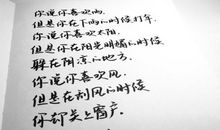 你说你喜欢雨，
但是你在下雨的时候打伞。
你说你喜欢太阳，
但是你在阳光明媚的时候
躲在阴凉的地方。
你说你喜欢风，
但是在刮风的时候
你却关上窗户。